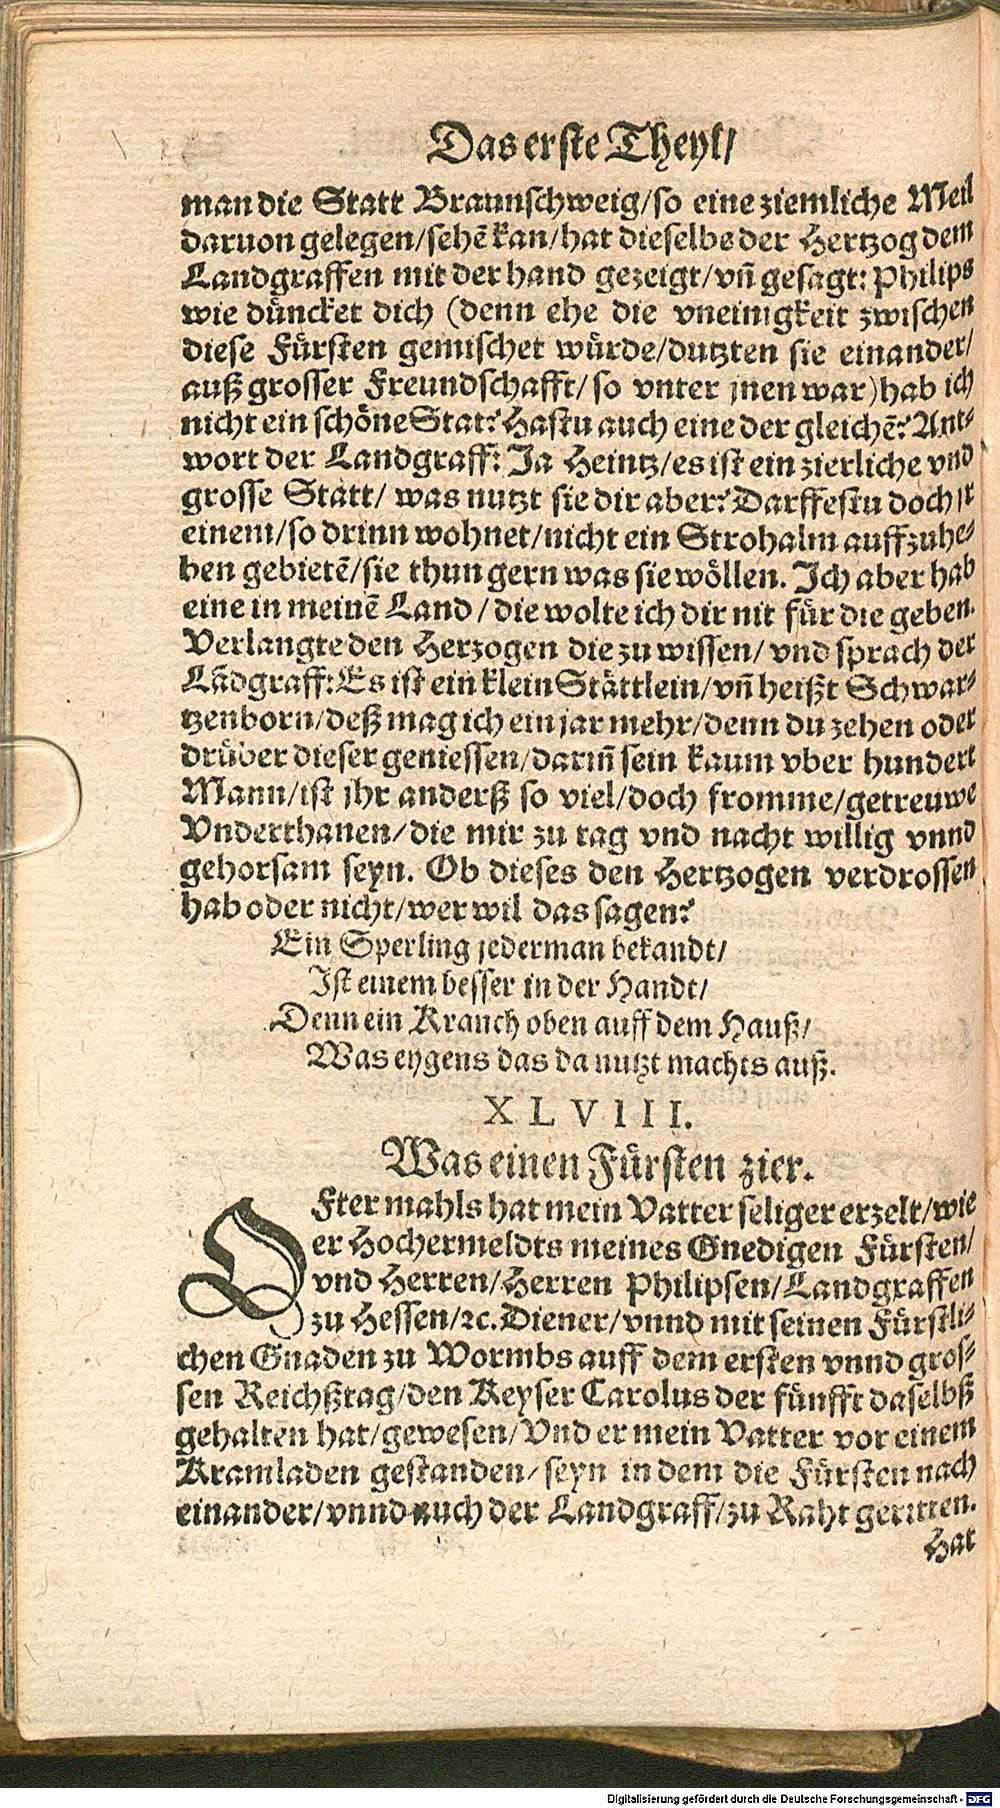 Das erste Theyl/
man die Statt Braunschweig/so eine ziemliche Meil
daruon gelegen/sehē kan/hat dieselbe der Hertzog dem
Landgraffen mit der hand gezeigt/vñ gesagt: Philips
wie düncket dich (denn ehe die vneinigkeit zwischen
diese Fürsten gemischet würde/dutzten sie einander/
auß grosser Freundschafft/so vnter jnen war) hab ich
nicht ein schöne Stat? Hastu auch eine der gleichē? Ant-
wort der Landgraff: Ja Heintz/es ist ein zierliche vnd
grosse Statt/ was nutzt sie dir aber? Darffestu doch jr
einem/so drinn wohnet/nicht ein Strohalm auffzuhe-
ben gebietē/sie thun gern was sie wöllen. Ich aber hab
eine in meinē Land/die wolte ich dir nit für die geben.
Verlangte den Herzogen die zu wissen/ vnd sprach der
Lādgraff: Es ist ein klein Stättlein/vñ heißt Schwar-
tzenborn/deß mag ich ein jar mehr/denn du zehen oder
drüber dieser geniessen/darin̄ sein kaum vber hundert
Mann/ist jhr anderß so viel/doch fromme/getreuwe
Vnderthanen/die mir zu tag vnd nacht willig vnnd
gehorsam seyn. Ob dieses den Hertzogen verdrossen
hab oder nicht/wer wil das sagen?
Ein Sperling jederman bekandt/
Ist einem besser in der Handt/
Denn ein Kranch oben auff dem Hauß/
Was eygens das da nutzt machts auß.
XLVIII.
Was einen Fürsten zier.
OFter mahls hat mein Vatter seliger erzelt/wie
er Hochermeldts meines Gnedigen Fürsten/
vnd Herren/Herren Philipsen/Landgraffen
zu Hessen/ꝛc. Diener/vnnd mit seinen Fürstli-
chen Gnaden zu Wormbs auff dem ersten vnnd gros-
sen Reichßtag/den Keyser Carolus der fünfft daselbß
gehalten hat/gewesen/Vnd er mein Vatter vor einem
Kramladen gestanden/seyn in dem die Fürsten nach
einander/vnnd auch der Landgraff/zu Raht geritten.
Hat
Digitalisierung gefördert durch die Deutsche Forschungsgemeinschaft - DFG